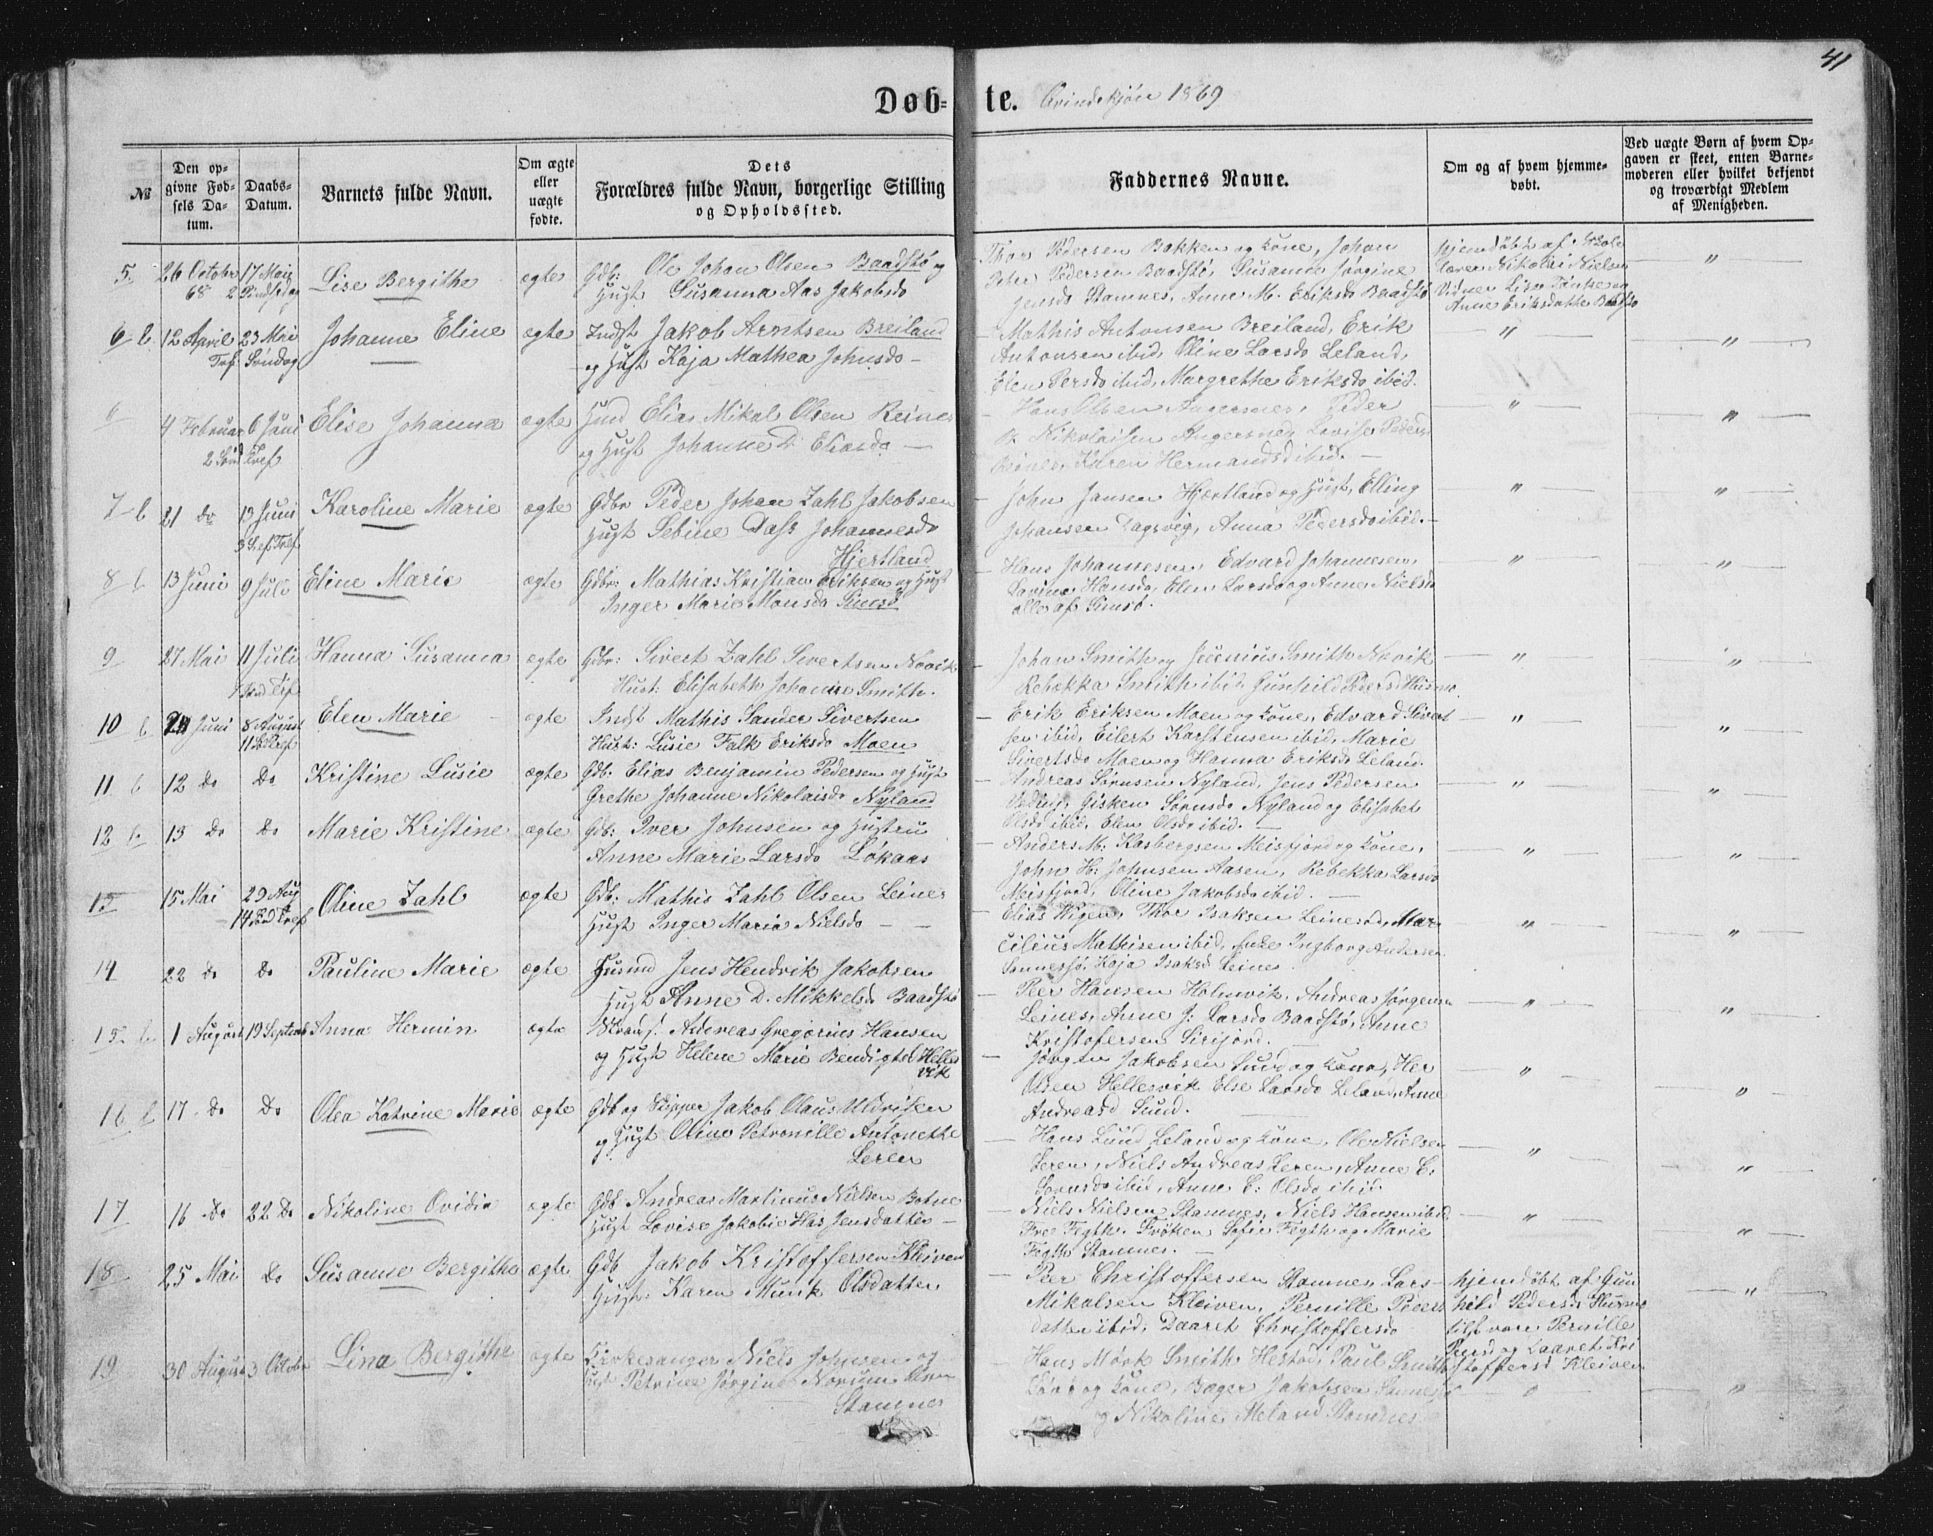 41
Døb- te. Qvindekjøn 1869
№
Den op-
givne Fød-
sels Da-
tum.
Daabs-
Datum.
Barnets fulde Navn.
Om ægte
eller
uægte
fødte.
Dets
Forældres fulde Navn, borgerlige Stilling
og Opholdssted.
Faddernes Navne.
Om og af hvem hjemme-
døbt.
Ved uægte Børn af hvem Op-
gaven er skeet, enten Barne-
moderen eller hvilket bekjendt
og troværdigt Medlem
af Menigheden.
5 26 Octobr 17 Mai Lise Bergithe ægte Gdb: Ole Johan Olsen Baadstø og
68 2 Pindsedag Hust Susanna Aas Jakobsdo
Thor Pedersen Bakken og kone, Johan
Peter Pedersen Baadstø, Susanna Jørgine
Jensdo Stamnes, Anne M. Eriksdo Baadstø
hjemdøbt af Skole
lærer Nikolai Nielsen
Vidner Lise
Anne Eriksdatte Baadstø
6 b 12 April 23 Mai Johanne Eline ægte Indst Jakob Arntsen Breiland
Tref Søndag og Hust Kaja Mathea Johnsdo
Mathis Antonsen Breiland, Erik
Antonsen ibid, Oline Larsdo Leland,
Elen Persdo ibid, Margrethe Eriksdo ibid.
6 4 Februar 6 Juni Elise Johanna ægte Husm Elias Mikal Olsen Reines
2 Sønd Tref og Hust Johanne D Eliasdo
Hans Olsen Angersnes, Peder
B. Nikolaisen Angersnes, Lovise Peders
Karen Hermandsd ibid.
7 b 21 do 13 Juni Karoline Marie ægte Gdbr Peder Johan Zahl Jakobsen
3 S. ef Tref Hust Sebine Dass Johannesdo
Hjertland
John Jansen Hjertland og Hust, Elling
Johansen Dagsvig, Anna Pedersdo ibid.
8 b 13 Juni 9 Juli Eline Marie ægte Gdbr: Mathias Kristian Eriksen og Hust
Inger Marie Monsdo
Hans Johannesen, Edvard Johannesen,
Hansdo, Elen Larsdo og Anne Nielsdo
alle af
9 27 Mai 11 Juli Hanna Susanna ægte Gdbr: Sivert Zahl Sivertsen Novik
Hust: Elisabeth Johanne Smith.
Johan Smith og Jesenius Smith Novik
Rebekka Smith ibid, Gunhild Pedersd Husmo
10 b Juni 8 August Elen Marie ægte Indst Mathis Sander Sivertsen
11 S. e Tref Hust: Lusie Falk Eriksdo Moen
Erik Eriksen Moen og kone, Edvard Sivert
sen ibid, Eilert Karstensen ibid, Marie
Sivertsdo Moen og Hanna Eriksdo Leland.
11 b 12 do Do Kristine Lusie ægte Gdb: Elias Benjamin Pedersen og Hust
Grethe Johanne Nikolaisdo Nyland
Andreas Sørnsen Nyland, Jens Pedersen
Gisken Sørnsdo Nyland og Elisabet
Olsdo ibid, Elen Olsdo ibid.
12 b 13 Do Do Marie Kristine ægte Gdb: Iver Johnsen og Hustru
Anne Marie Larsdo Løkaas
Anders M: Kasbergsen Meisfjord og kone,
John H: Johnsen Aasen, Rebekka Larsdo
Meisfjord, Oline Jakobsdo ibid.
13 15 Mai 29 Aug Oline Zahl ægte Gdb: Mathis Zahl Olsen Leines
14 S. e Tref Hust Inger Maria Nielsdo
Elias Wigen, Thor Isaksen Leinesod, Mar
cilius Mathisen ibid, Enke Ingborg Andersen
Sannesjø, Kaja Isaksd Leines.
14 22 do Do Pauline Marie ægte Husmd Jens Hendrik Jakobsen
Hust Anne D. Mikkelsdo Baadstø
Peer Hansen Holmvik, Andreas Jørgensen
Leines, Anne J: Larsdo Baadstø, Anne
Kristofersen Sirijord.
15 b 1 August 19 Septemb Anna Hermin ægte Strands: Andreas Gregorius Hansen
og Hust Helene Marie Bendigted Helles
vik
Jørgen Jakobsen Sund og kone, Her
Olsen Hellesvik Else Larsdo Leland, Anne
Andreasd Sund.
16 b 17 Do Do Olea Katrine Marie ægte Gdb og Skipper Jakob Olaus Uldriksen
og Hust Oline Petronille Antonette
Leren
Hans Lund Leland og kone, Ole Nielsen
Leren, Niels Andreas Leren, Anne E:
Sørnsdo ibid, Anne E: Olsdo ibid.
17 16 do 22 Do Nikoline Ovidia ægte Gdb Andreas Martinus Nielsen Botne
Hust Lovise Jakobie Has Jensdatter
Niels Nielsen Stamnes, Niels Hansen ibid,
Frue Fogth, Frøken Sofie Fogth og Marie
Fogth Stamnes.
18 25 Mai Do Susanne Bergithe ægte Gdb Jakob Kristoffersen Kleiven
Hust: Karen Munk Olsdatter
Peer Christoffersen Stamnes, Lars
Mikalsen Kleiven, Pernille Peers
datter ibid, Daaret Christoffersdo
hjemdøbt af Gun
hild Pedersd Husmo
tilst vare Pernille
Peersd og Daaret Kri
stoffersd Kleiven
19 30 August 3 Octobr Lina Bergithe ægte Kirkesanger Niels Johnsen og
Hust Petrine Jørgine Norum
Stamnes
Hans Mørk Smith Hestad, Paul Smith
og kone, Bøger Jakobsen Sannesjø
og Nikoline Meland Stamnes